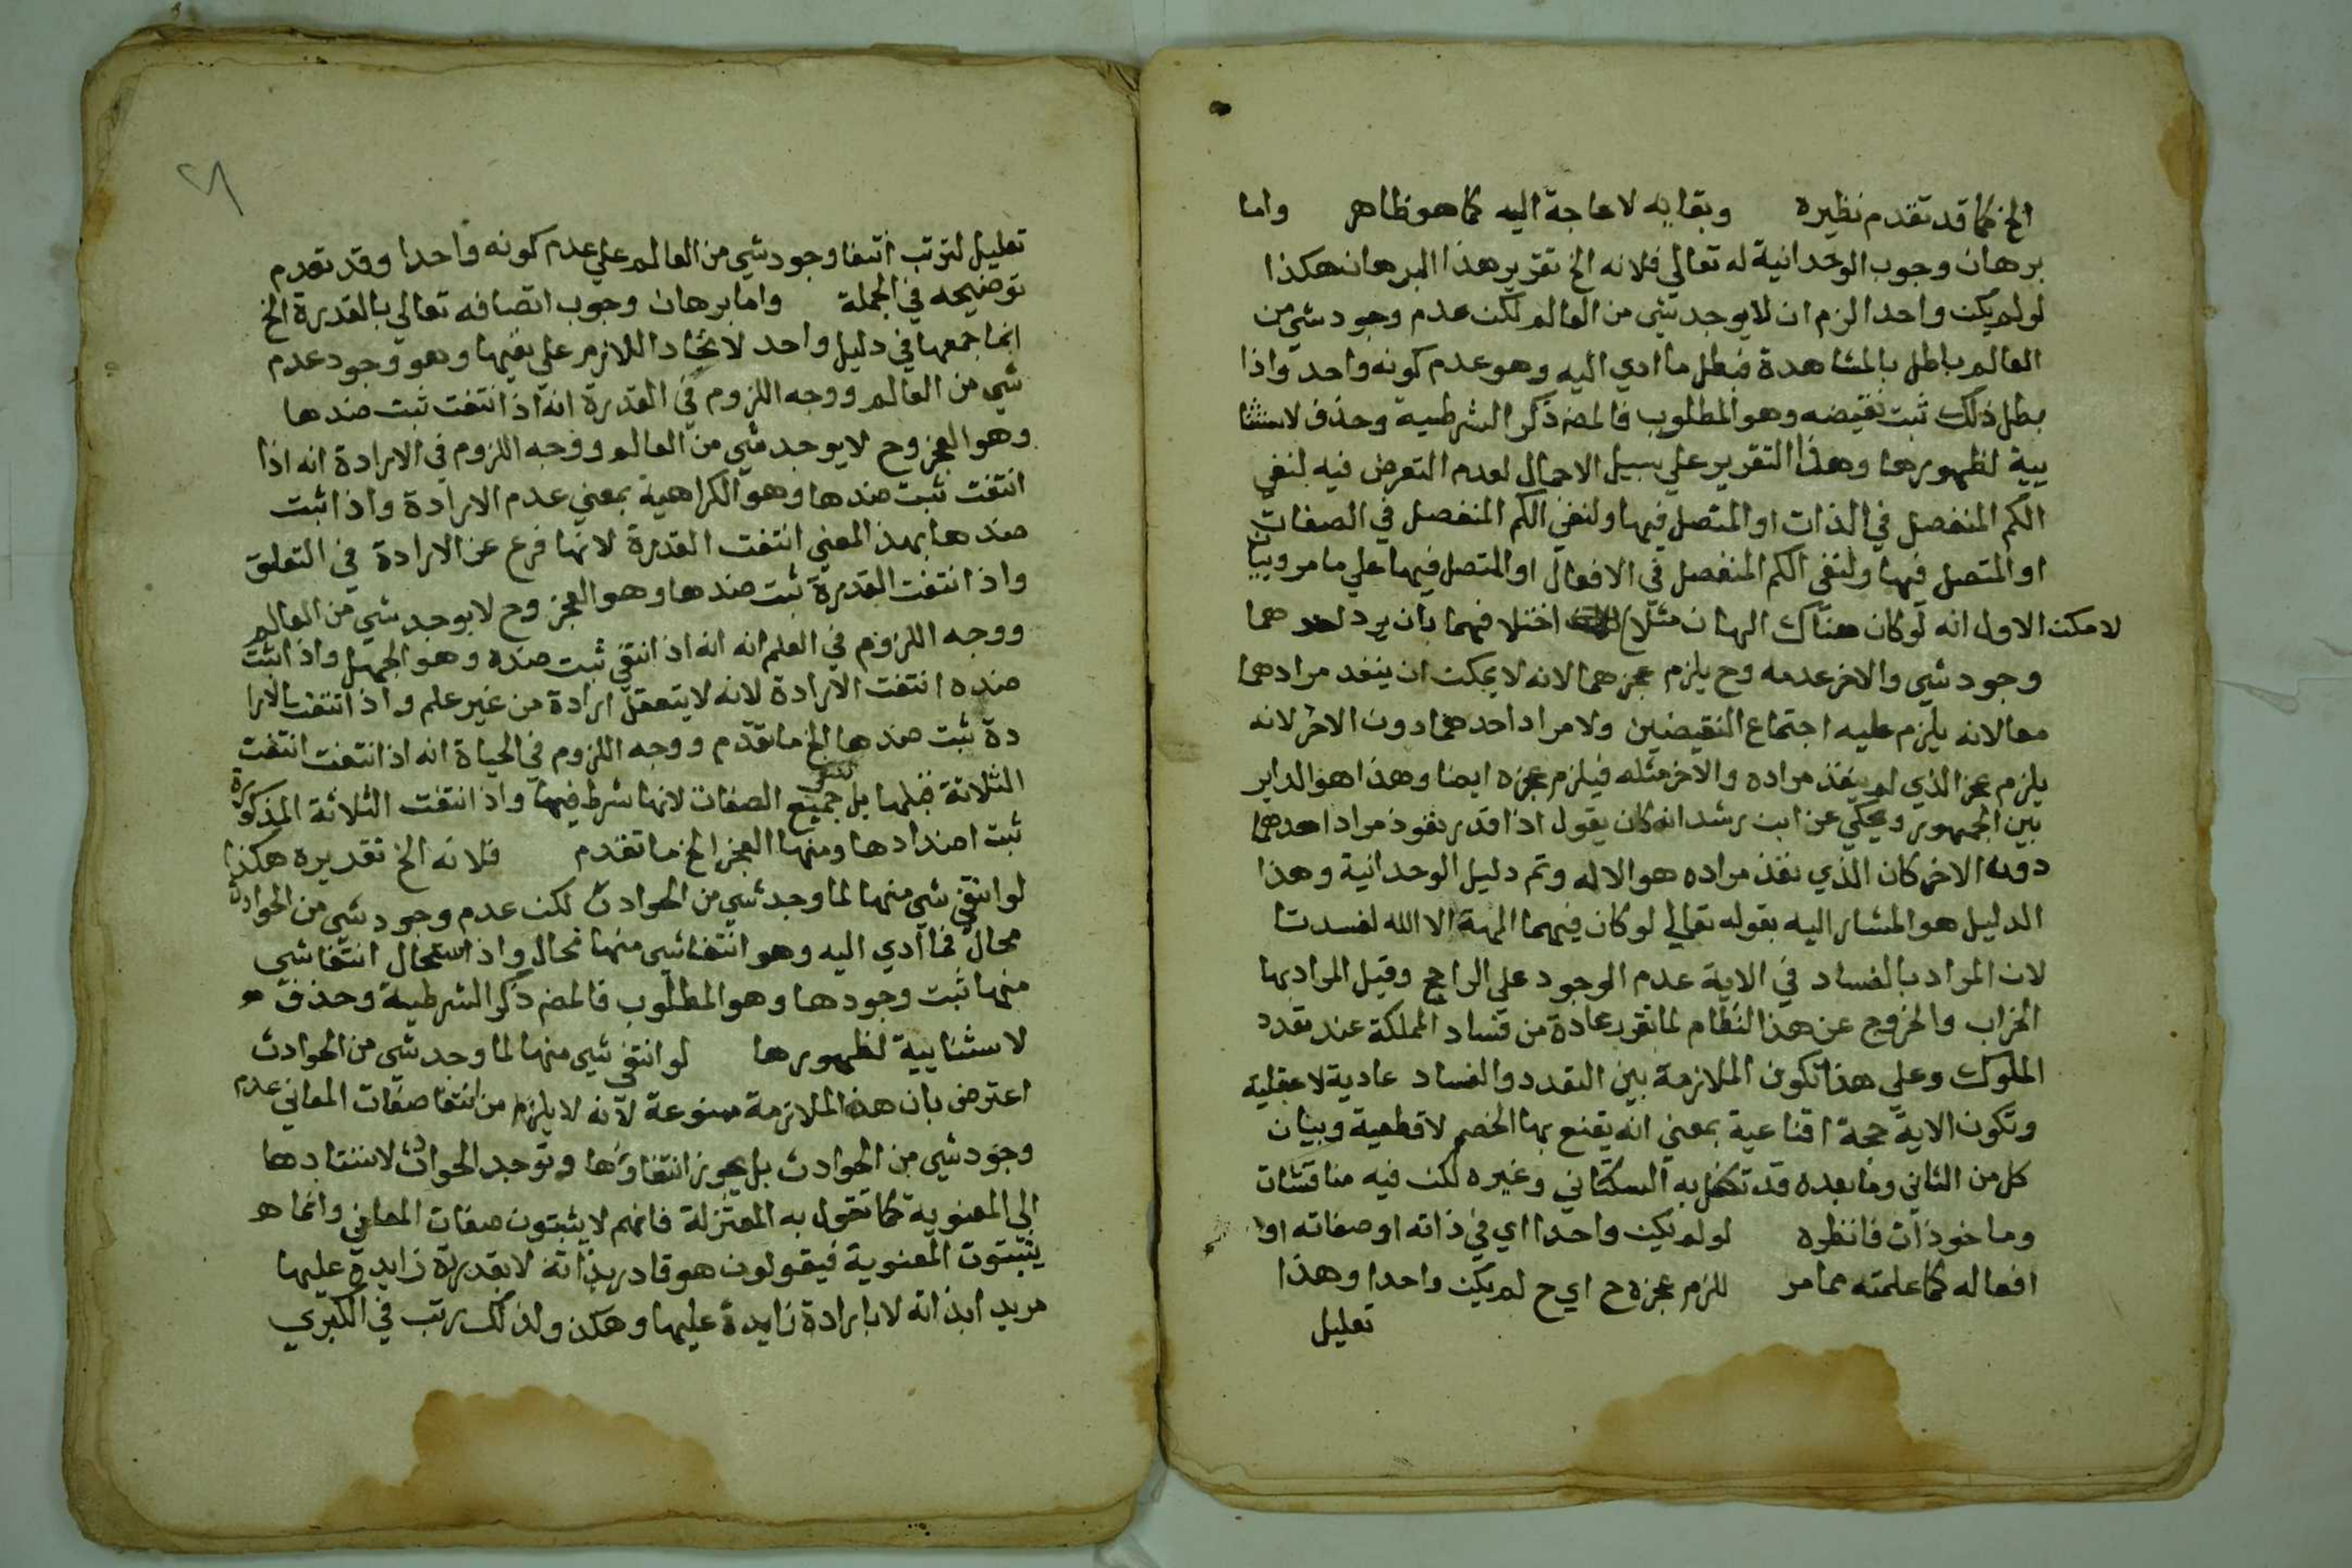 الخ كما قد تقدم نظيره وبقايه لا حاجة اليه كما هو ظاهر واما
برهان وجوب الوحدانية له تعالي فلانه الخ تقرير هذا البرهان هكذا
لو لم يكن واحدا لزم ان لا يوجد شي من العالم لكن عدم وجود شي من
العالم باطل بالمشاهدة فبطل ما ادي اليه وهو عدم كونه واحد واذا
بطل ذلك ثبت نقيضه وهو المطلوب فالمصر ذكر الشرطية وحذف لاستثنا
يية لظهورها وهذا التقرير علي سبيل الاجمال لعدم التعرض فيه لنفي
الكم المنفصل في الذات او المتصل فيها ولنفي الكم المنفصل في الصفات
او المتصل فيها ولنفي الكم المنفصل في الافعال او المتصل فيها علي ما مر وبيا
لا مكن الاول انه لو كان هناك الهان مثلا اختلافهما بان يرد احدهما
وجود شي والاخر عدمه وح يلزم عجزهما لانه لا يمكن ان ينفد مرادهما
معا لانه يلزم عليه اجتماع النقيضين ولا مراد احدهما دون الاخر لانه
يلزم عجز الذي لم ينفذ مراده والاخر مثله فيلزم عجزه ايضا وهذا هو الداير
بين الجمهور ويحكي عن ابن رشد انه كان يقول اذا قدر نفوذ مراد احدهما
دون الاخر كان الذي نفذ مراده هو الاله وتم دليل الوحدانية وهذا
الدليل هو المشار اليه بقوله تعالي لو كان فيهما الهة الا الله لفسدتا
لان المراد بالفساد في الاية عدم الوجود علي الراجح وقيل المراد بها
الخراب والخروج عن هذا النظام لما تقرر عادة من فساد المملكة عند تعدد
الملوك وعلي هذا تكون الملازمة بين التعدد والفساد عادية لا عقلية
وتكون الاية حجة اقناعية بمعني انه يقنع بها الخصم لا قطعية وبيان
كل من الثاني وما بعده قد تكفل به السكتاني وغيره لكن فيه مناقشات
وماخوذات فانظره لو لم يكن واحدا اي في ذاته او صفاته او
افعاله كما علمته مما مر للزم عجزه ح اي ح لم يكن واحدا وهذا
تعليل
تعليل لترتب انتفا وجود شي من العالم علي عدم كونه واحدا وقد تقدم
توضيحه في الجملة واما برهان وجوب اتصافه تعالي بالقدرة الخ
انما جمعها في دليل واحد لاتحاد اللازم علي نفيها وهو وجود عدم
شي من العالم ووجه اللزوم في القدرة انه اذا انتفت ثبت ضدها
وهو العجز وح لا يوجد شي من العالم ووجه اللزوم في الارادة انه اذا
انتفت ثبت ضدها وهو الكراهية بمعني عدم الارادة واذا ثبت
ضدها بهذ المعني انتفت القدرة لانها فرع عن الارادة في التعلق
واذ انتفت القدرة ثبت ضدها وهو العجز وح لا يوجد شي من العالم
ووجه اللزوم في العلم انه انه اذ انتفي ثبت ضده وهو الجهل واذ اثبت
ضده انتفت الارادة لانه لا يتعقل ارادة من غير علم واذ انتفت الارا
دة ثبت ضدها الخ ما تقدم ووجه اللزوم في الحياة انه اذ انتفت انتفت
الثلاثة قبلها بل جميع الصفات لانها شرط فيها واذ انتفت الثلاثة المذكورة
ثبت اضدادها ومنها العجز الخ ما تقدم فلانه الخ تقديره هكذا
لو انتفي شي منها لما وجد شي من الحوادث لكن عدم وجود شي من الحوادث
محال فما ادي اليه وهو انتفا شي منها محال واذ استحال انتفا شي
منها ثبت وجودها وهو المطلوب فالمصر ذكر الشرطية وحذف
لاستثنايية لظهورها لو انتفي شي منها لما وجد شي من الحوادث
اعترض بان هذه الملازمة ممنوعة لانه لا يلزم من انتفا صفات المعاني عدم
وجود شي من الحوادث بل يجوز انتفاوها وتوجد الحوادث لاستنادها
الي المعنوية كما تقول به المعتزلة فانهم لا يثبتون صفات المعاني وانما هو
يثبتون المعنوية فيقولون هو قادر بذاته لا بقدرة زايدة عليها
مريد ابذاته لا بارادة زايدة عليها وهكذ ولذلك رتب في الكبري